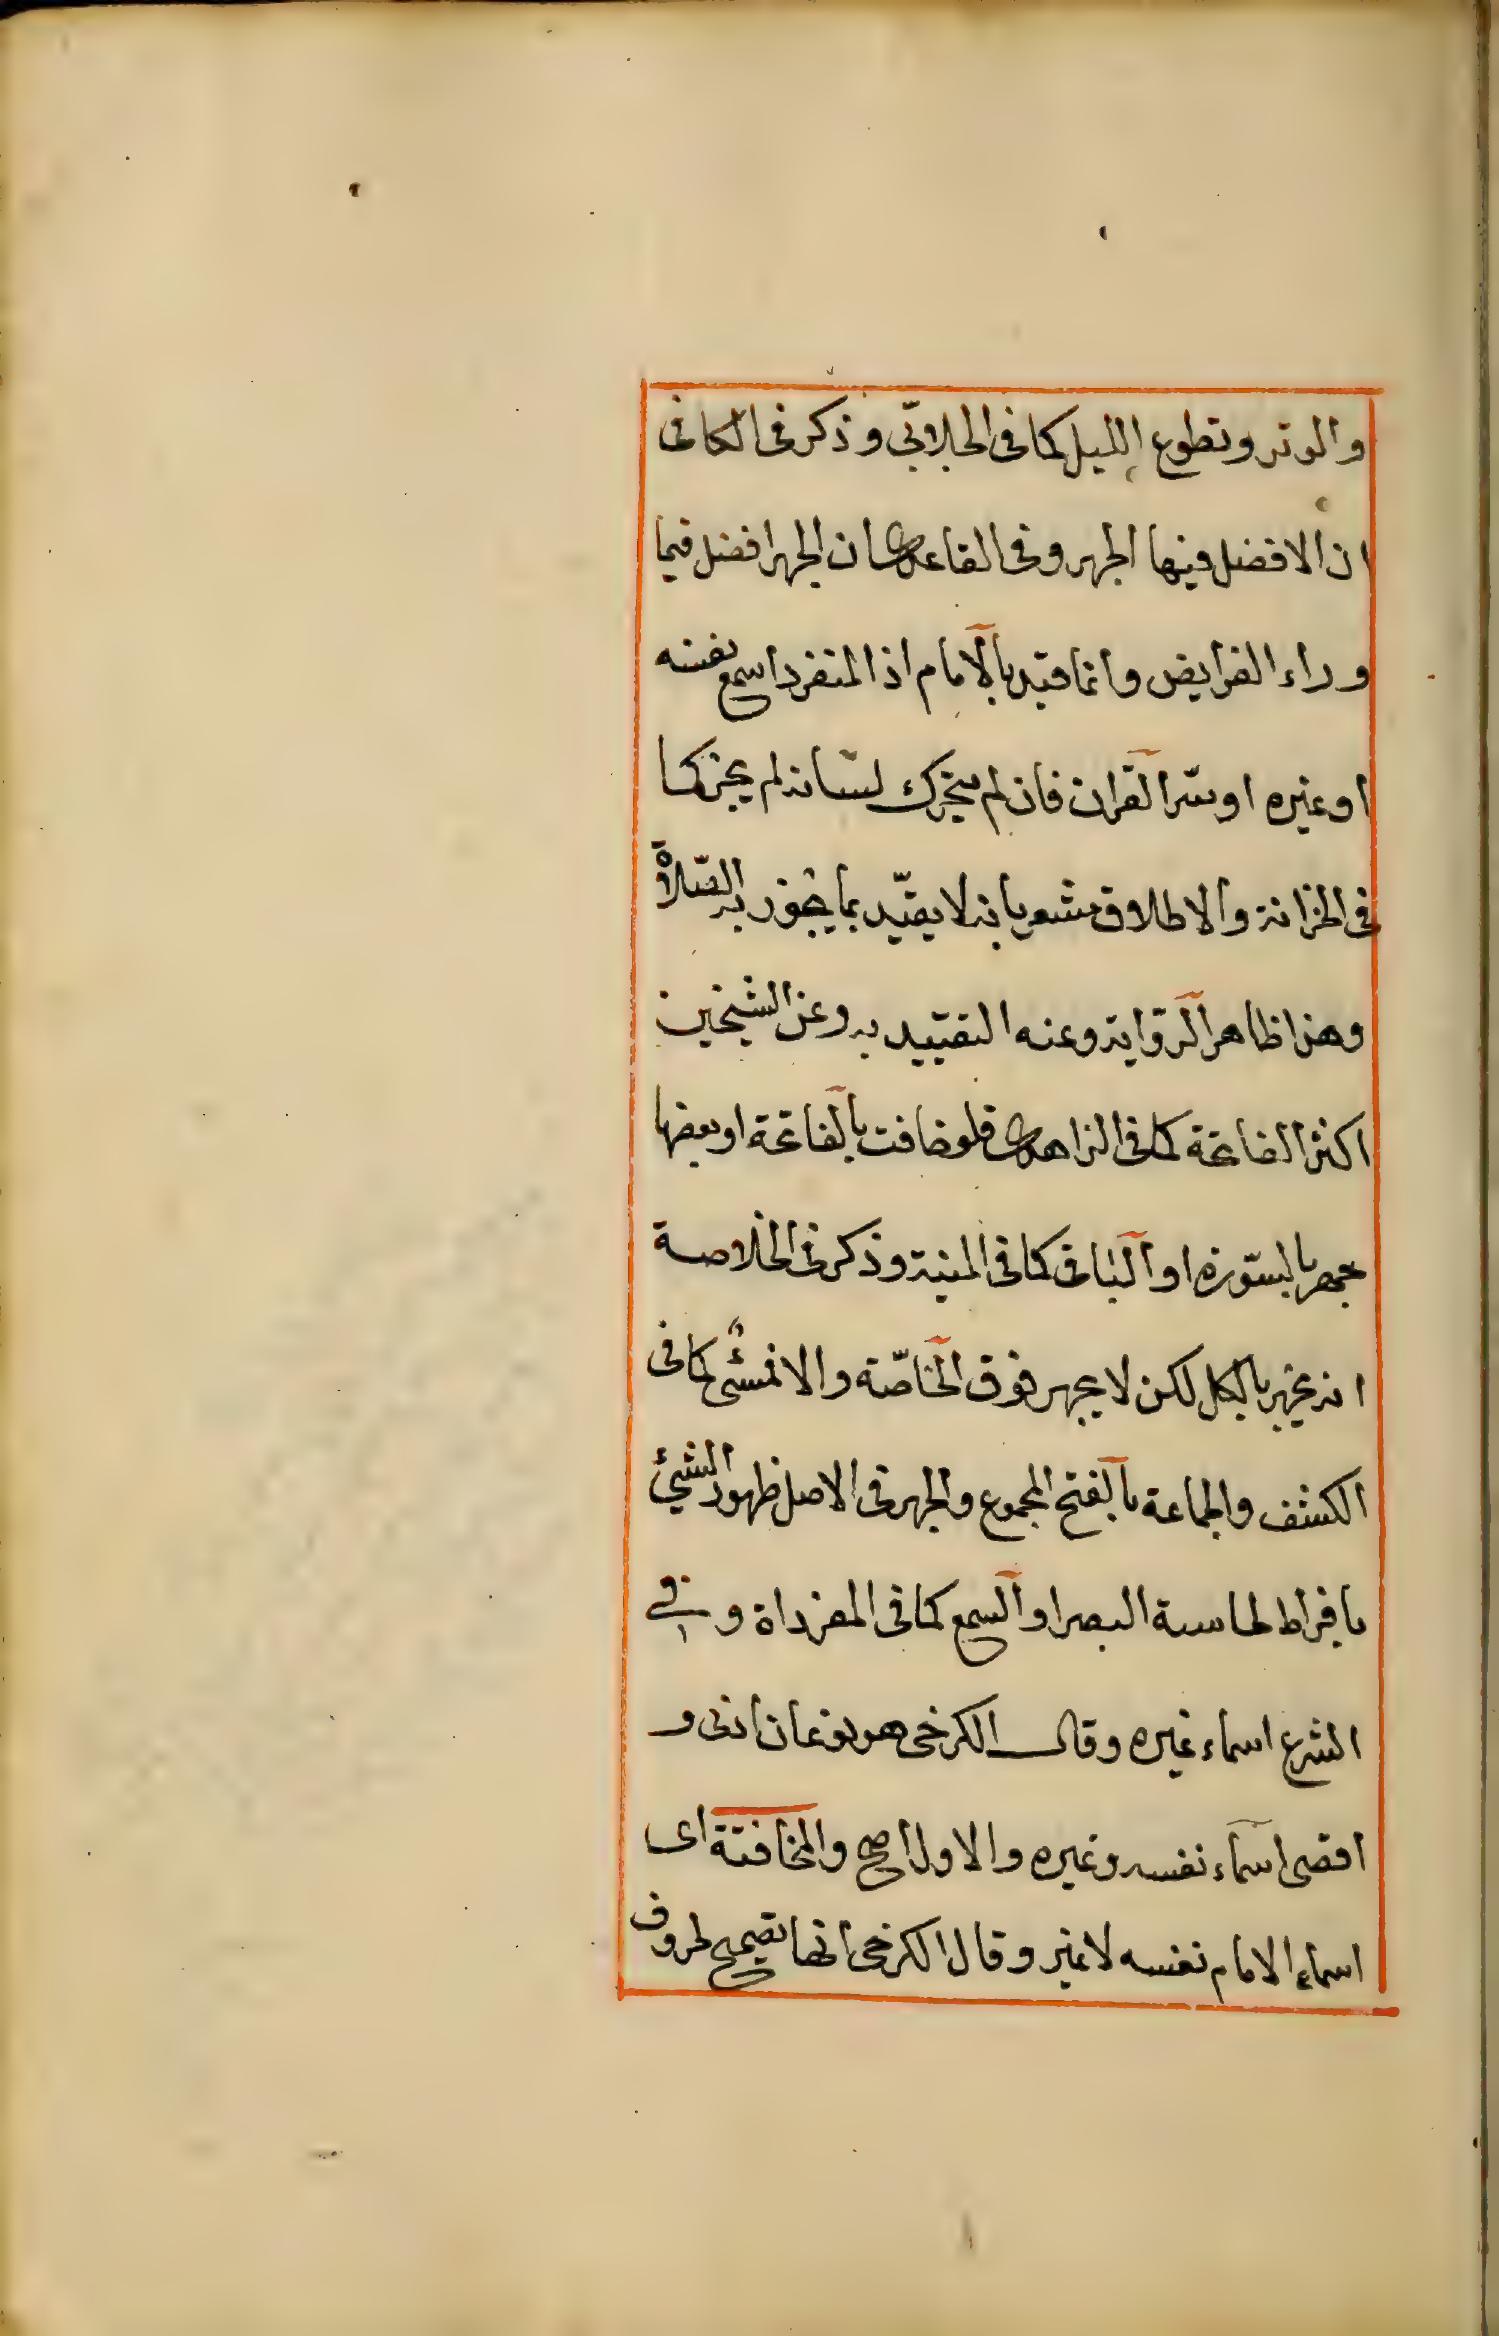 والوتر وتطوع الليل كما فى الجلابّى وذكر فى الكافى
ان الافضل فيها الجهر وفى القاعدى ان الجهر افضل فيما
وراء الفرايض وانما قيد بالامام اذ المنفرد اسمع نفسه
او غيره او سّر القران فان لم يحرك لسانه لم يجز كما
فى الخزانة والاطلاق مشعر بانه لا يقيّد بما يجوز به الصّلاة
وهذا ظاهر الرّواية وعنه التقييد به وعن الشيخين
اكثر الفاتحة كما فى الزاهدى فلو خافت بالفاتحة او بعضها
جهر بالسّورة او الباقى كما فى المنية وذكر فى الخلاصة
انه يجهر بالكل لكن لا يجهر فوق الخاصّة والا فمسئ كما فى
الكشف والجماعة بالفتح المجموع والجهر فى الاصل ظهور الشيئ
بافراط لحاسة البصر او السمع كما فى المفرداة وفي
الشرع اسماع غيره وقال الكرخى هو نوعان ادنى و
اقصى اسماع نفسه وغيره والاول اصح والمخافتة اى
اسماع الامام نفسه لا غير وقال الكرخى انها تصحيح الحروف